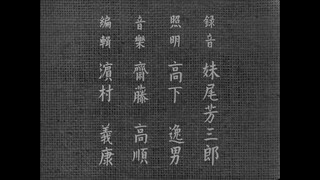 録音 妹尾芳三郎
照明 高下逸男
音樂 齋藤高順
編輯 濱村義康